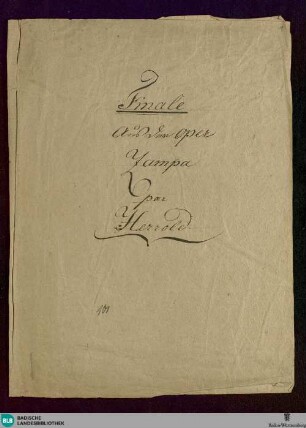 Finale
aus der Oper
Zampa
par
Herrold.
101
BLB BADISCHE
LANDESBIBLIOTHEK
Baden-Württemberg